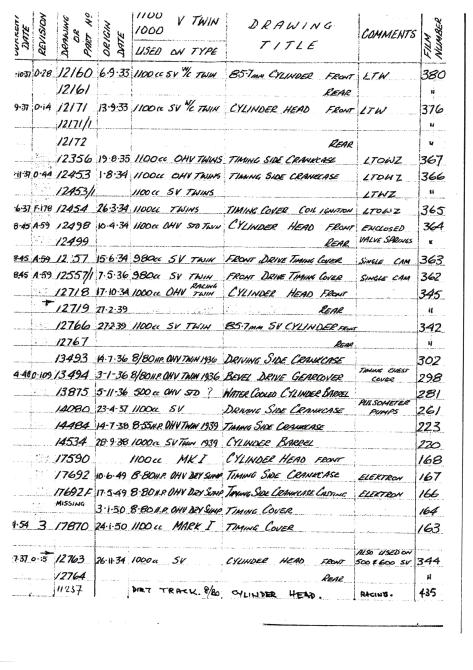 CURRENT DATE REVISION DRAWING OR PART Nº ORIGIN DATE 1100 1000 V TWIN USED ON TYPE DRAWING TITLE COMMENTS FILM NUMBER
10-37 O-28 12160 6-9-33 1100cc SV W/C TWIN 85·7mm CYLINDER FRONT LTW 380
12161 REAR
9-37 O-14 12171 13-9-33 1100cc SV W/C TWIN CYLINDER HEAD FRONT LTW 376
12171/1 "
12172 REAR "
12356 19-8-35 1100cc OHV TWINS TIMING SIDE CRANKCASE LTOWZ 367
11-37 O-44 12453 1-8-34 1100cc OHV TWINS TIMING SIDE CRANKCASE LTOWZ 366
12453/1 1100cc SV TWINS LTWZ "
6-37 F-178 12454 26-3-34 1100cc TWINS TIMING COVER COIL IGNITION LTOWZ 365
8-45 A-59 12498 10-4-34 1100cc OHV STD TWIN CYLINDER HEAD FRONT ENCLOSED 364
12499 REAR VALVE SPRINGS "
8-45 A-59 12 57 15-6-34 980cc SV TWIN FRONT DRIVE TIMING COVER SINGLE CAM 363
8-45 A-59 12557/1 7-5-36 980cc SV TWIN FRONT DRIVE TIMING COVER SINGLE CAM 362
12718 17-10-34 1000cc OHV RACING TWIN CYLINDER HEAD FRONT 345
12719 27-2-39 REAR "
12766 27-2-39 1100cc SV TWIN 85·7mm SV CYLINDER FRONT 342
12767 REAR "
13493 14-7-36 8/80 H.P. OHV TWIN 1936 DRIVING SIDE CRANKCASE 302
4-48 O-109 13494 3-1-36 8/80 H.P. OHV TWIN 1936 BEVEL DRIVE GEARCOVER TIMING CHEST COVER 298
13875 5-11-36 500cc OHV STD ? WATER COOLED CYLINDER BARREL 281
14080 23-4-37 1100cc SV DRIVING SIDE CRANKCASE PULSOMETER PUMPS 261
14484 14-7-38 8·55 H.P. OHV TWIN 1939 TIMING SIDE CRANKCASE 223
14534 28-9-38 1000cc SV TWIN 1939 CYLINDER BARREL 220
17590 1100cc MK.I CYLINDER HEAD FRONT 168
17692 10-6-49 8·80 H.P. OHV DRY SUMP TIMING SIDE CRANKCASE ELEKTRON 167
17692F 17-5-49 8·80 H.P. OHV DRY SUMP TIMING SIDE CRANKCASE CASTING ELEKTRON 166
MISSING 3-1-50 8·80 H.P. OHV DRY SUMP TIMING COVER 164
4-54 3 17870 24-1-50 1100cc MARK I TIMING COVER 163
7-37 O-15 12763 26-11-34 1000cc SV CYLINDER HEAD FRONT ALSO USED ON 500 & 600 SV 344
12764 REAR "
11237 DIRT TRACK. 8/80. CYLINDER HEAD. RACING. 435